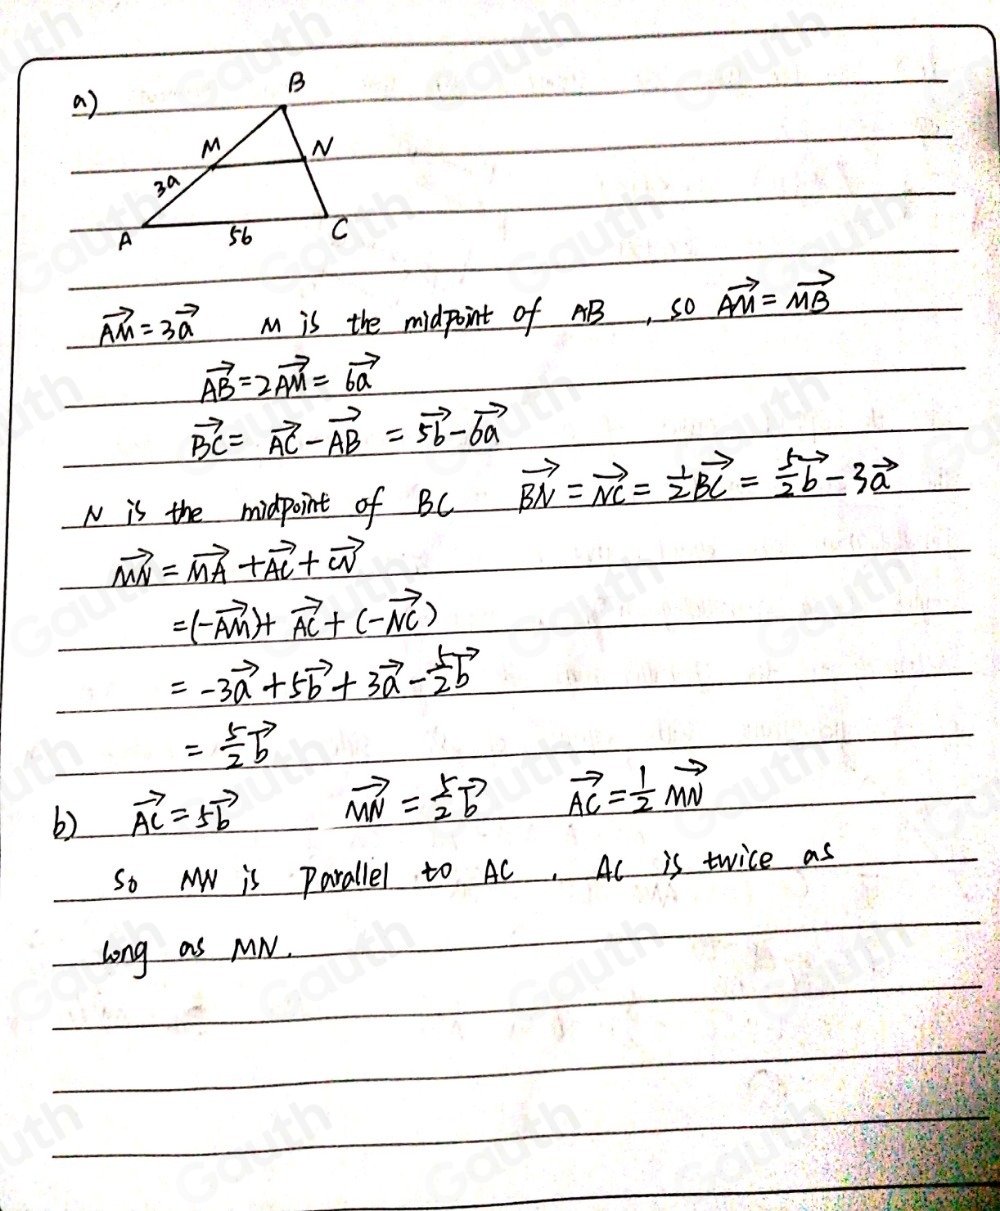 a)
B
M
N
3a
A
5b
C
AM⃗ = 3a⃗ M is the midpoint of AB, so AM⃗ = MB⃗
AB⃗ = 2AM⃗ = 6a⃗
BC⃗ = AC⃗ - AB⃗ = 5b⃗ - 6a⃗
N is the midpoint of BC BN⃗ = NC⃗ = 1/2 BC⃗ = 5/2 b⃗ - 3a⃗
MN⃗ = MA⃗ + AC⃗ + CN⃗
= (-AM⃗) + AC⃗ + (-NC⃗)
= -3a⃗ + 5b⃗ + 3a⃗ - 5/2 b⃗
= 5/2 b⃗
b) AC⃗ = 5b⃗ MN⃗ = 5/2 b⃗ AC⃗ = 1/2 MN⃗
So MN is parallel to AC. AC is twice as
long as MN.